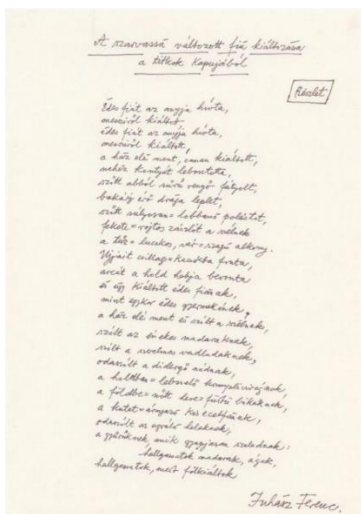 A szarvassá változott fiú kiáltozása
a titkok kapujából
Részlet
Édes fiát az anyja hívta,
messziről kiáltott
édes fiát az anyja hívta,
messziről kiáltott,
a ház elé ment, onnan kiáltott,
nehéz kontyát lebontotta,
szőtt abból sűrű rengő fátyolt,
bokáig érő drága leplet,
szőtt súlyosan lobbanó palástot,
fekete rojtos zászlót a szélnek
a tűz vér szagú alkony.
Ujjait csillag fonta,
arcát a hold habja bevonta
és úgy kiáltott édes fiának,
mint egykor édes gyermekének,
a ház elé ment és szólt a szélnek,
szólt az énekes madaraknak,
szólt a szerelmes vadludaknak,
odaszólt a didergő nádnak,
a földben
a kutat árnyazó
odaszólt az ugráló halaknak,
a gyűrűknek, amik szaladnak:
hallgassatok madarak, ágak,
hallgassatok, mert fölkiáltok
Juhász Ferenc.